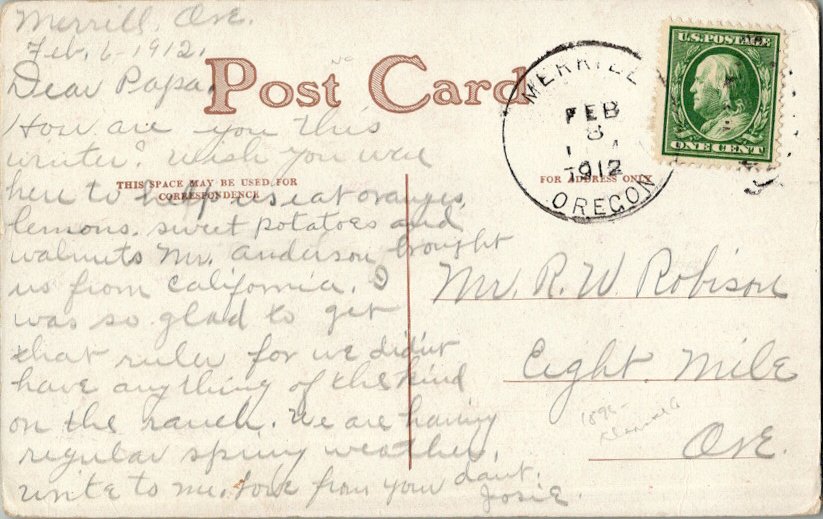 Merrill, Ore.
Feb. 6-1912.
Dear Papa,
How are you this
winter? Wish you were
here to help us eat oranges,
lemons, sweet potatoes and
walnuts Mr. Anderson brought
us from California. I
was so glad to get
that ruler for we didn't
have any thing of the kind
on the ranch. We are having
regular spring weather.
write to me. Love from your daut.
Josie.
No
Post Card
THIS SPACE MAY BE USED FOR
CORRESPONDENCE
FOR ADDRESS ONLY
MERRILL
FEB
8
1912
OREGON
U.S. POSTAGE
ONE CENT
Mr. R. W. Robison
Eight Mile
Ore.
1896-